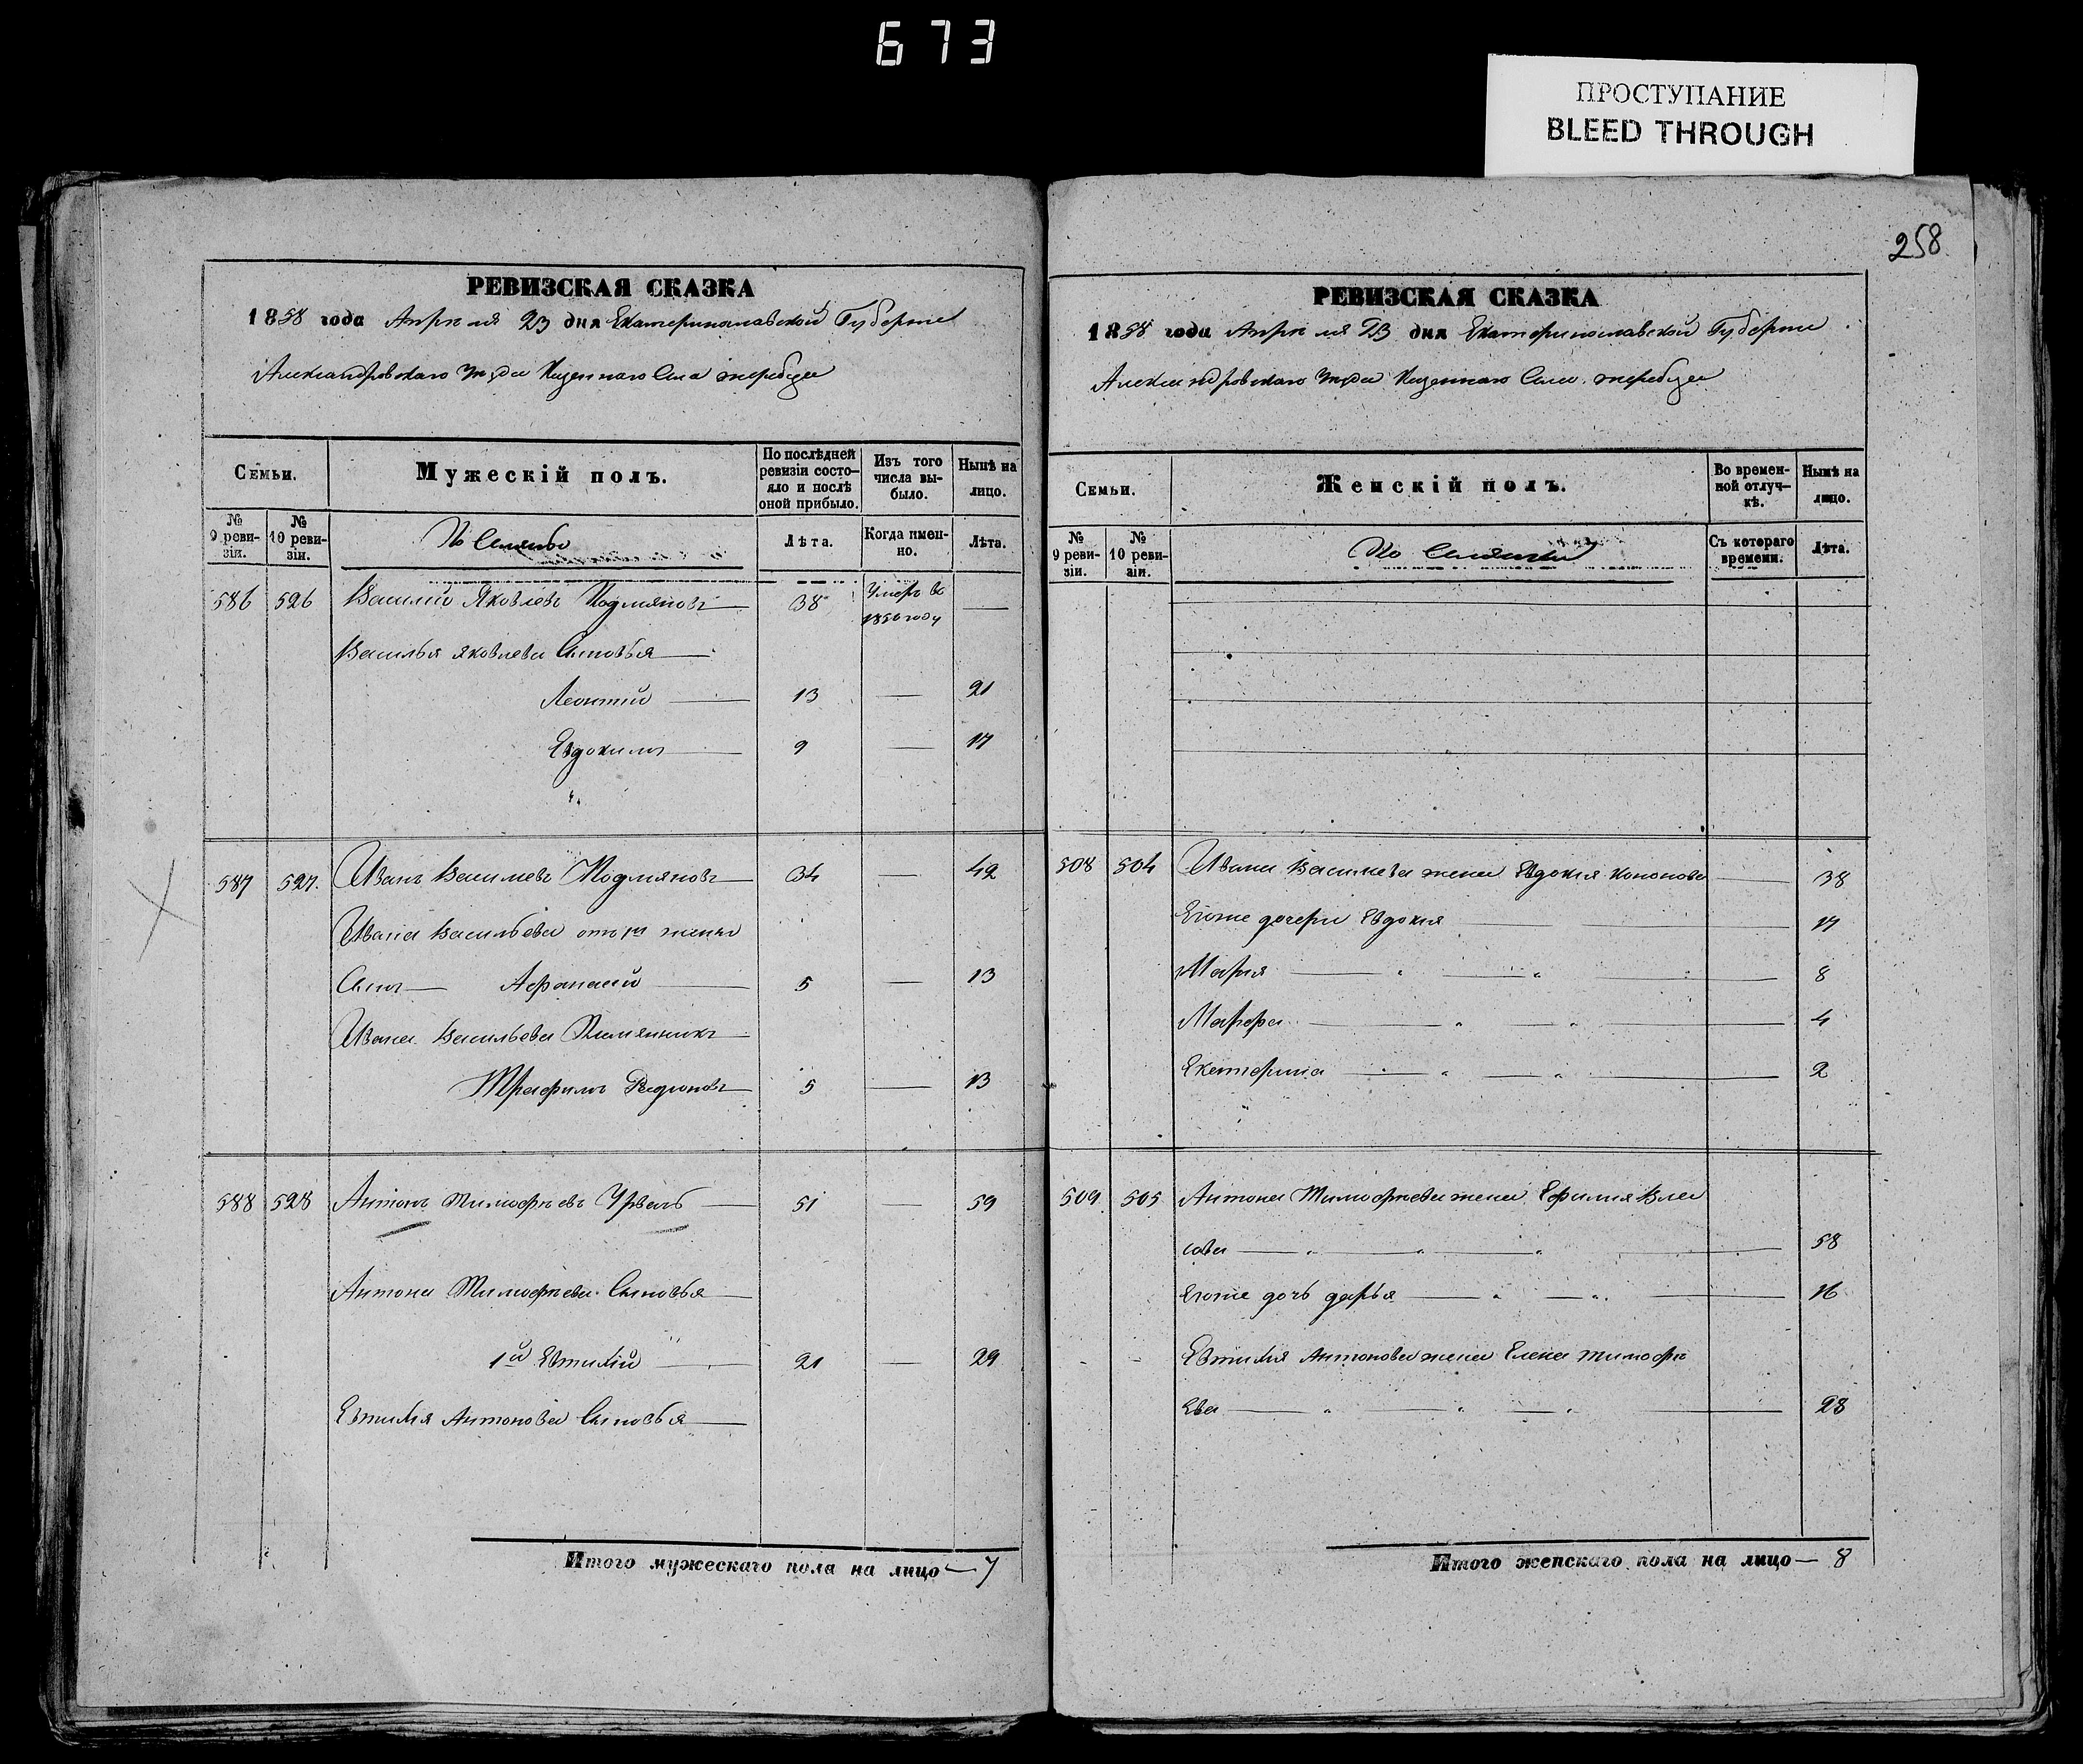 673
ПРОСТУПАНИЕ
BLEED THROUGH
258
РЕВИЗСКАЯ СКАЗКА
1858 года Апреля 23 дня Екатеринославской Губернии
Александровского уезда Казенного Села Жеребца
Семьи.
Мужескій полъ.
По послѣдней ревизіи состо-
яло и послѣ
оной прибыло.
Изъ того
числа вы-
было.
Нынѣ на
лицо.
№
9 реви-
зіи.
№
10 реви-
зіи.
Лѣта.
Когда имен-
но.
Лѣта.
586 526 Василий Яковлевъ 38 Умеръ въ
1850 году
Василья Яковлева Сыновья
Леонтий 13 21
Евдокимъ 9 17
587 527. Иванъ Василиевъ 34 42
Ивана Васильева отъ 1й жены
Сынъ Афанасий 5 13
Ивана Васильева Племянникъ
Трафимъ Радионовъ 5 13
588 528 Антонъ Тимофеевъ 51 59
Антона Тимофеева Сыновья
1й Евтихий 21 29
Евтихия Антонова Сыновья
Итого мужескаго пола на лицо — 7
РЕВИЗСКАЯ СКАЗКА
1858 года Апреля 23 дня Екатеринославской Губернии
Александровского уезда Казенного Села Жеребца
Семьи.
Женскій полъ.
Во времен-
ной отлуч-
кѣ.
Нынѣ на
лицо.
№
9 реви-
зіи.
№
10 реви-
зіи.
Съ котораго
времени.
Лѣта.
508 504 Ивана Василиева жена Евдокия Кононова 38
Егоже дочери Евдокия 17
Мария 8
Марфа 4
Екатерина 2
509. 505 Антона Тимофеева жена Ефимия Вла
сова 58
Егоже дочь Дарья 16
Евтихия Антонова жена Елена Тимофе
ева 28
Итого женскаго пола на лицо — 8